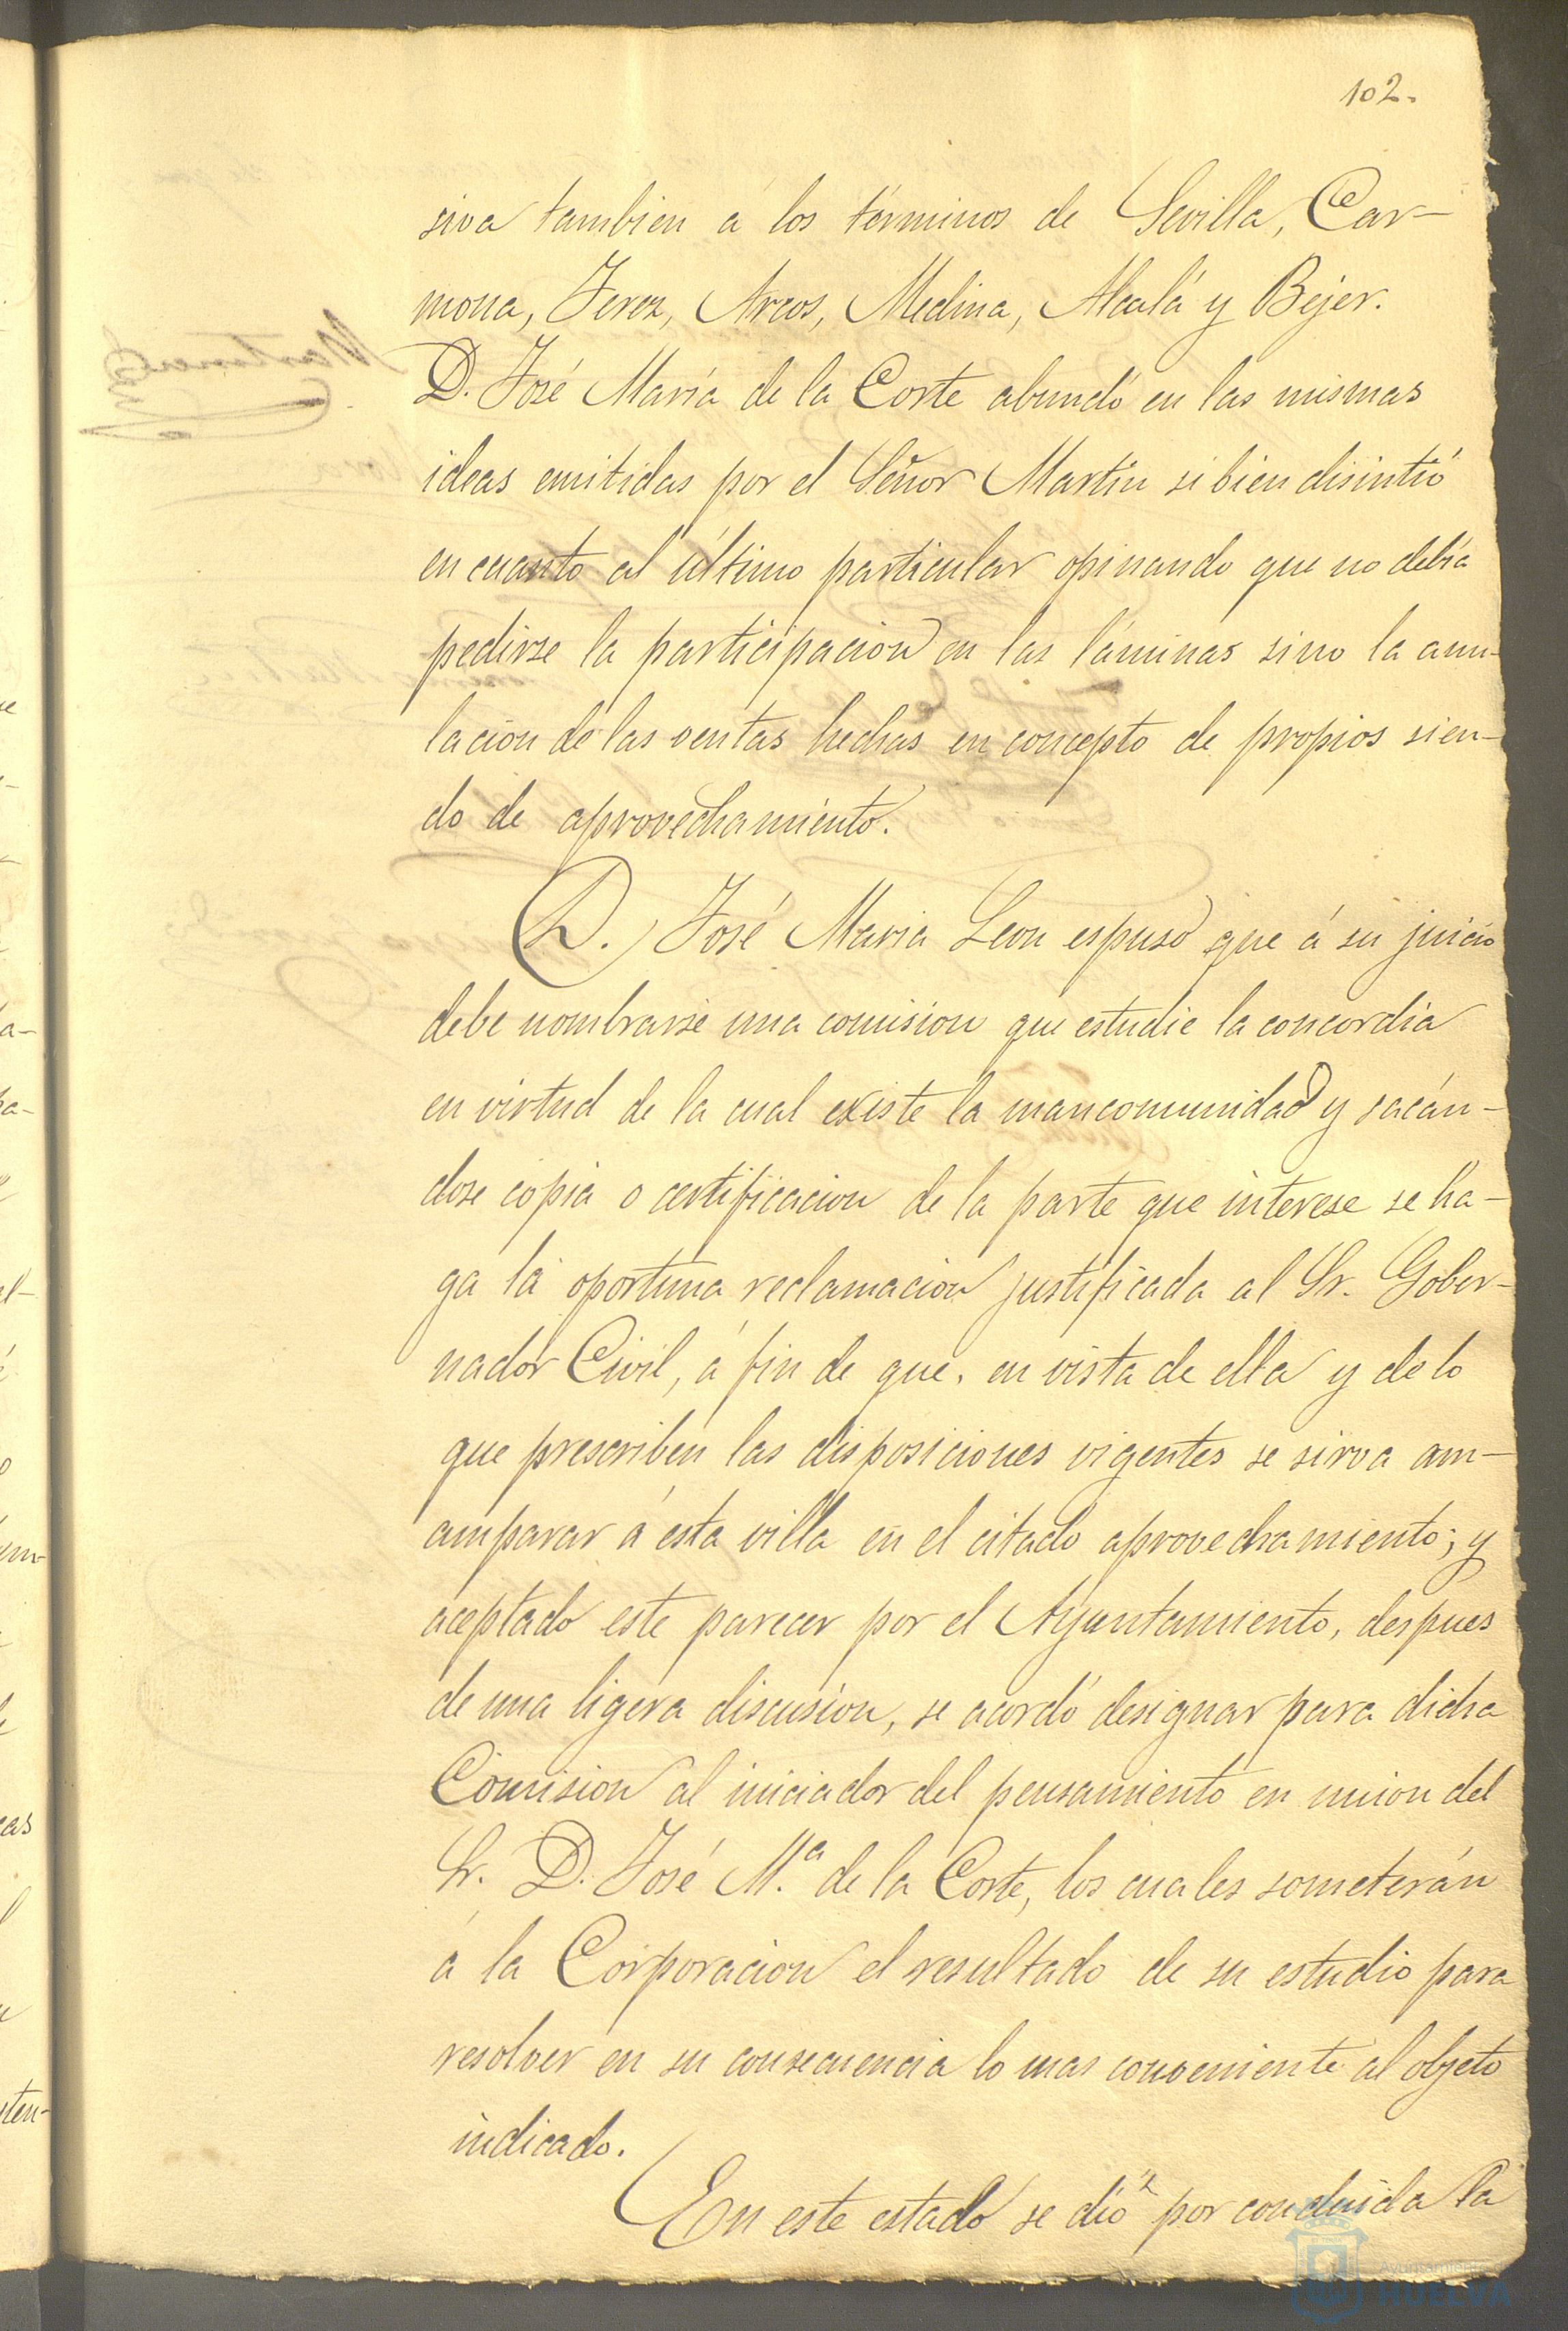 102.
siva tambien á los términos de Sevilla, Car-
mona, Jerez, Arcos, Medina, Alcalá y Bejer.
D. José María de la Corte abundó en las mismas
ideas emitidas por el Señor Martín si bien disintió
en cuanto al último particular opinando que no debía
pedirse la participacion en las láminas sino la anu-
lacion de las ventas hechas en concepto de propios sien-
do de aprovechamiento.
D. José Maria Leon espuso que á su juicio
debe nombrarse una comision que estudie la concordia
en virtud de la cual existe la mancomunidad y sacán-
dose copia o certificacion de la parte que interese se ha-
ga la oportuna reclamacion justificada al Sr. Gober-
nador Civil, á fin de que, en vista de ella y de lo
que prescriben las disposiciones vigentes se sirva am-
amparar á esta villa en el citado aprovechamiento; y
aceptado este parecer por el Ayuntamiento, despues
de una ligera discusion, se acordó designar para dicha
Comision al iniciador del pensamiento en union del
Sr. D. José M.ª de la Corte, los cuales someterán
á la Corporacion el resultado de su estudio para
resolver en su consecuencia lo mas conveniente al objeto
indicado.
En este estado se dió por concluida la
Ayuntamiento
HUELVA